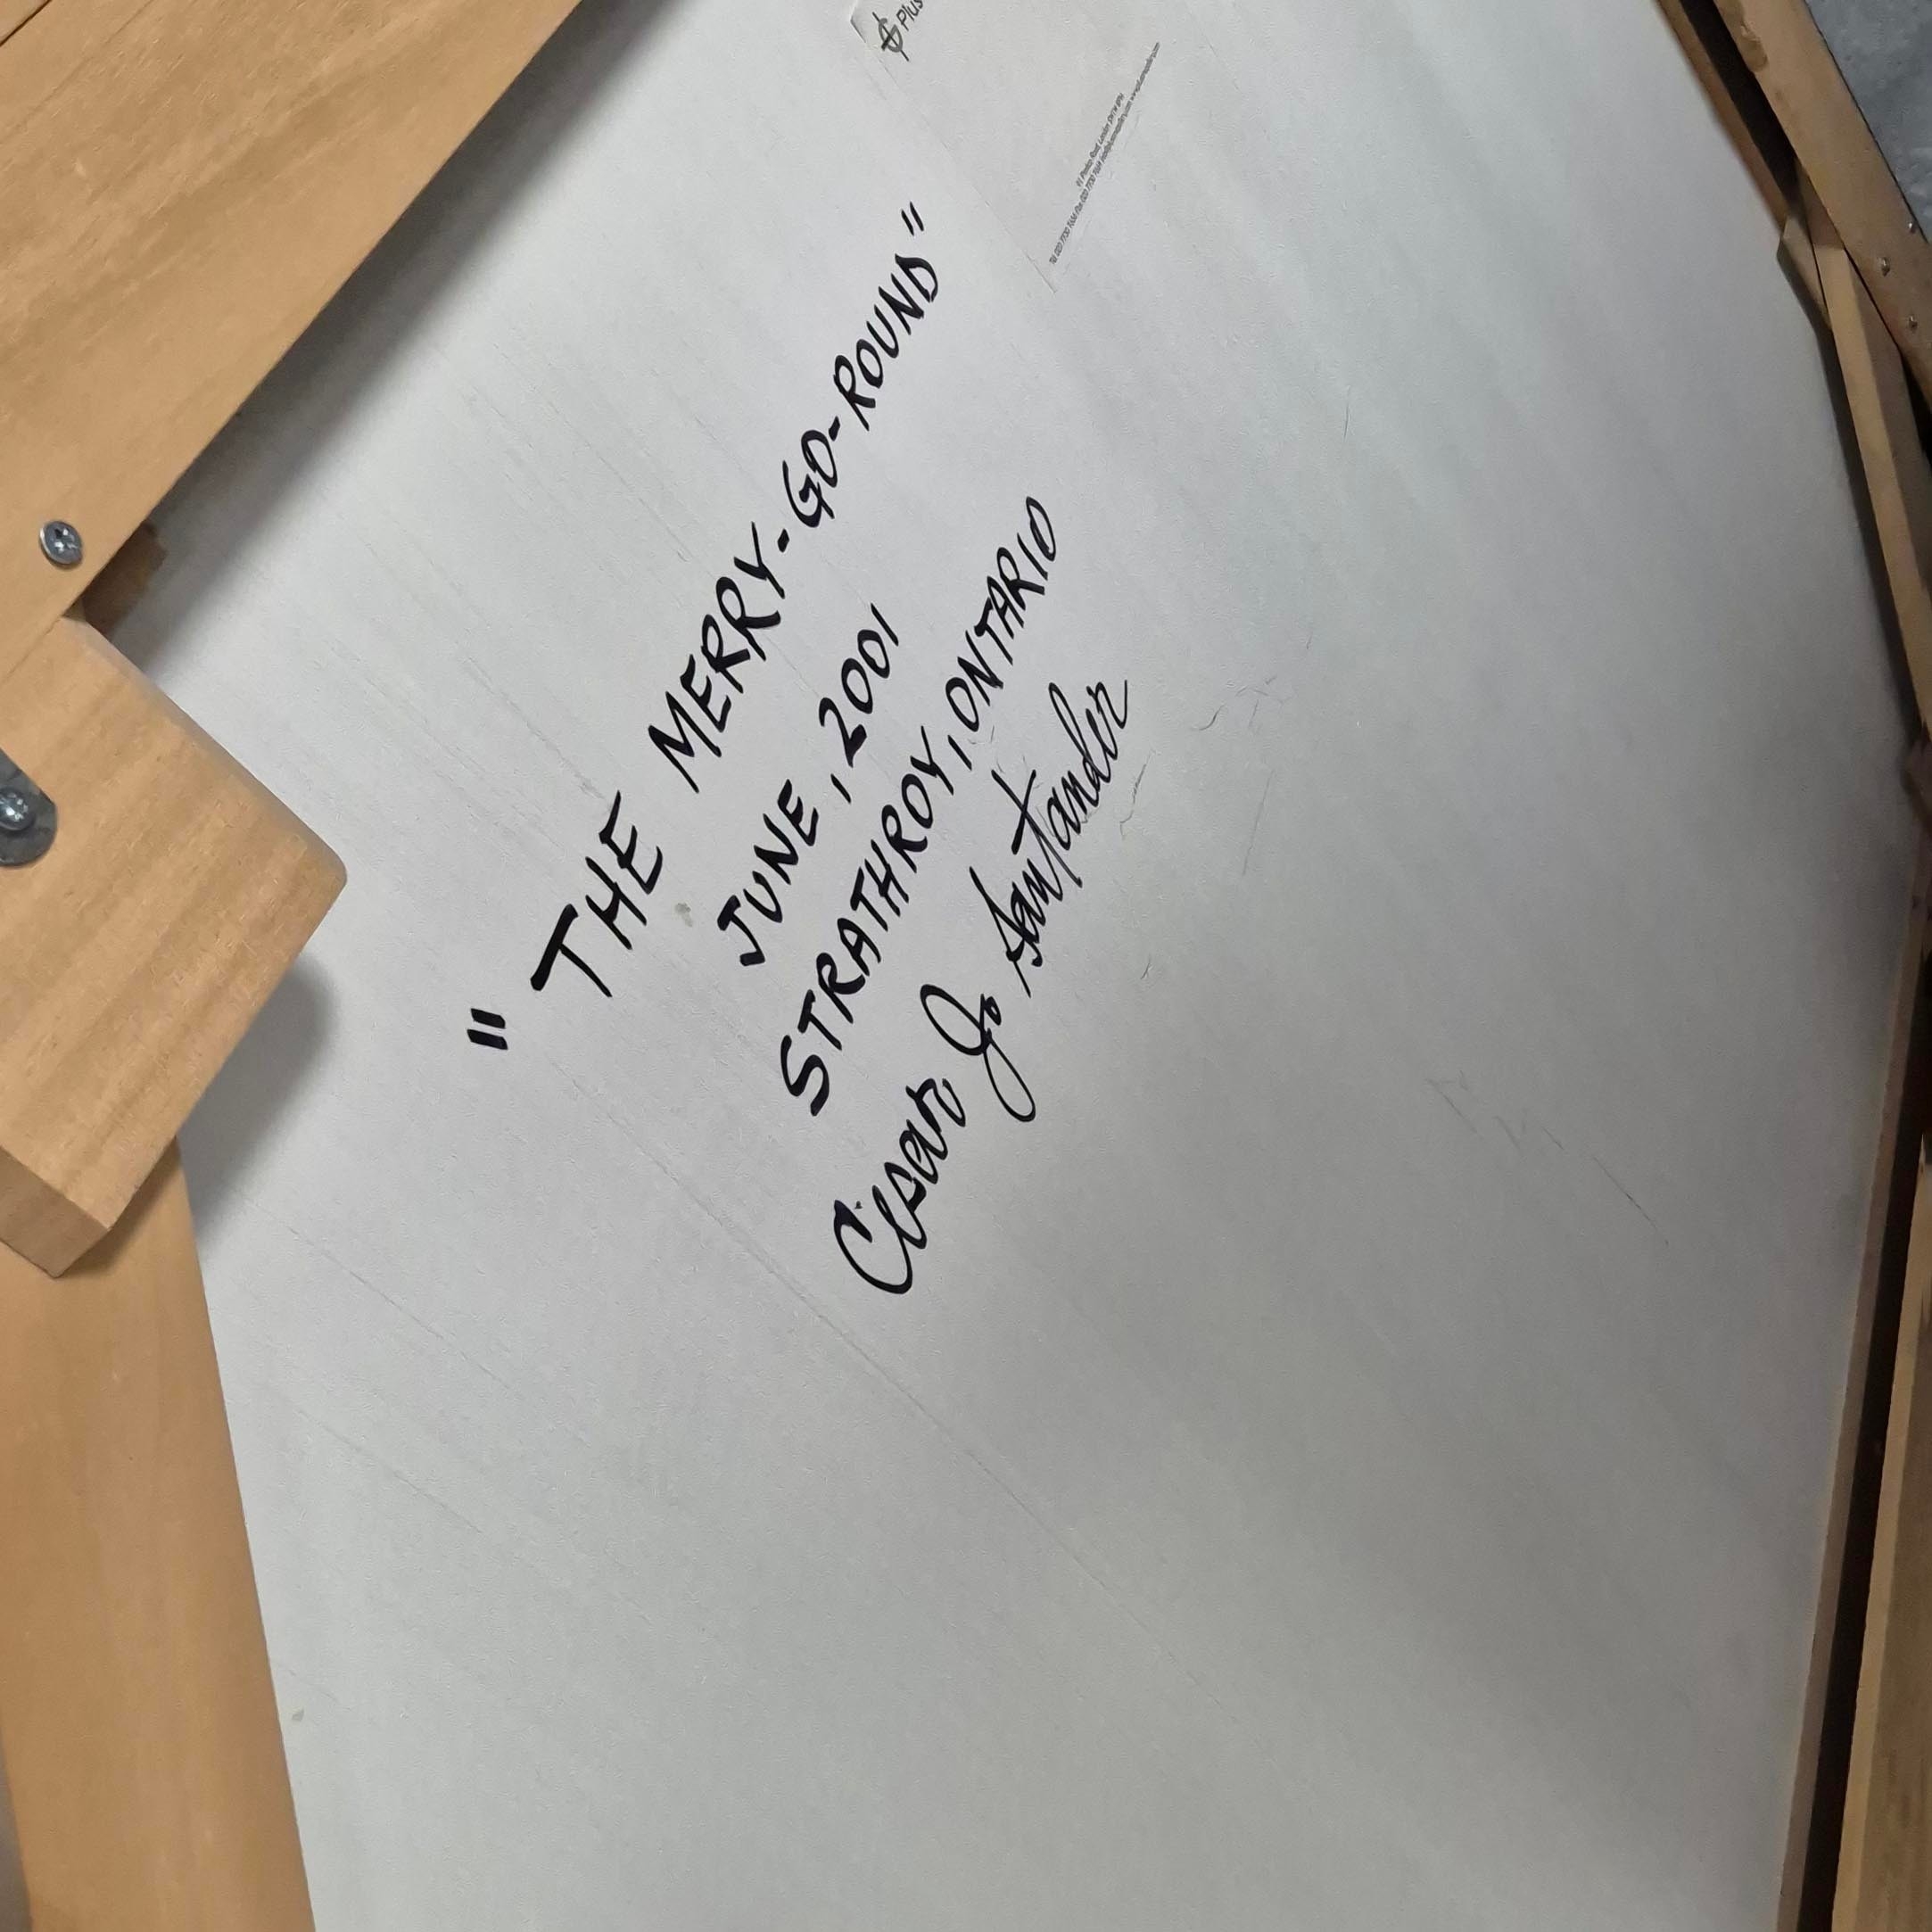 Plus
"THE MERRY-GO-ROUND"
JUNE, 2001
STRATHROY, ONTARIO
Cesar J. Santander